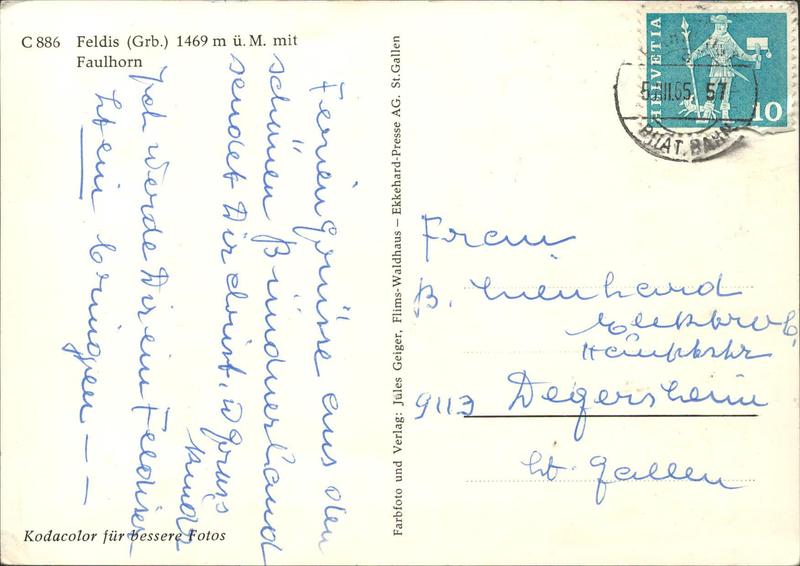 C 886 Feldis (Grb.) 1469 m ü. M. mit
Faulhorn
Feriengrüsse aus dem
schönen Bündnerland
sendet Dir
Gruss
Ich werde Dir ein Feldiser-
stein bringen – –
Kodacolor für bessere Fotos
Farbfoto und Verlag: Jules Geiger, Flims-Waldhaus – Ekkehard-Presse AG. St.Gallen
HELVETIA
10
65. 57
Frau
B. Lienhard
Hauptstr
9113 Degersheim
St. Gallen